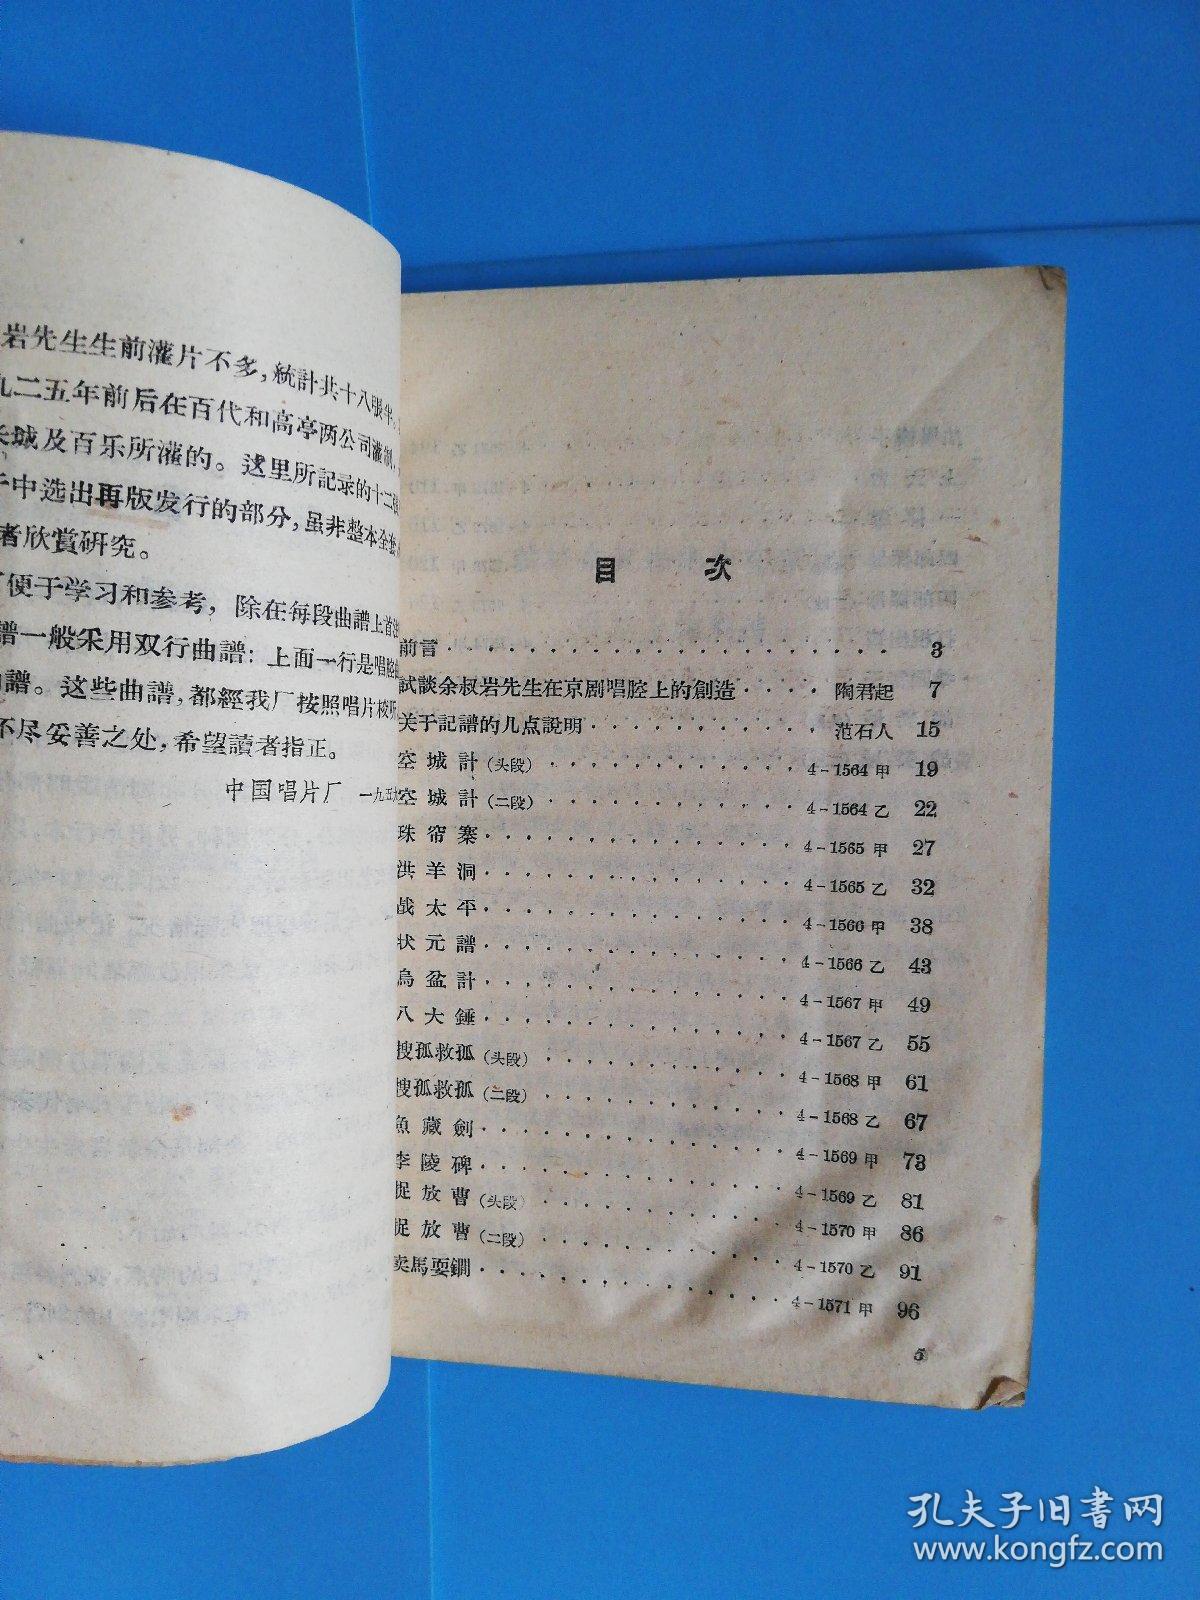 岩先生生前灌片不多，統計共十八張半。
九二五年前后在百代和高亭两公司灌制，
长城及百乐所灌的。这里所記录的十二張
中选出再版发行的部分，虽非整本全套，
者欣賞研究。
便于学习和参考，除在每段曲譜上首
譜一般采用双行曲譜：上面一行是唱腔
譜。这些曲譜，都經我厂按照唱片校
不尽妥善之处，希望讀者指正。
中国唱片厂 一九五
目 次
前言 3
試談余叔岩先生在京剧唱腔上的創造 陶君起 7
关于記譜的几点說明 范石人 15
空城計（头段） 4–1564甲 19
空城計（二段） 4–1564乙 22
珠帘寨 4–1565甲 27
洪羊洞 4–1565乙 32
战太平 4–1566甲 38
状元譜 4–1566乙 43
烏盆計 4–1567甲 49
八大錘 4–1567乙 55
搜孤救孤（头段） 4–1568甲 61
搜孤救孤（二段） 4–1568乙 67
魚藏劍 4–1569甲 73
李陵碑 4–1569乙 81
捉放曹（头段） 4–1570甲 86
捉放曹（二段） 4–1570乙 91
卖馬耍鐧 4–1571甲 96
5
孔夫子旧书网
www.kongfz.com